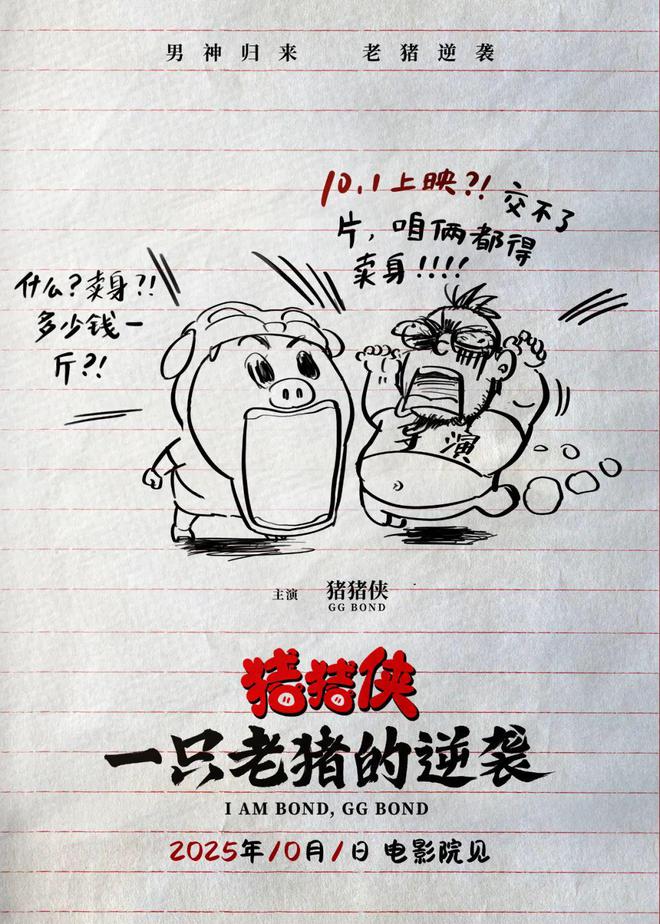 男神归来 老猪逆袭
10.1上映?!交不了
片,咱俩都得
卖身!!!!
什么?卖身?!
多少钱一
斤?!
导演
主演 猪猪侠
GG BOND
猪猪侠
一只老猪的逆袭
I AM BOND, GG BOND
2025年10月1日 电影院见